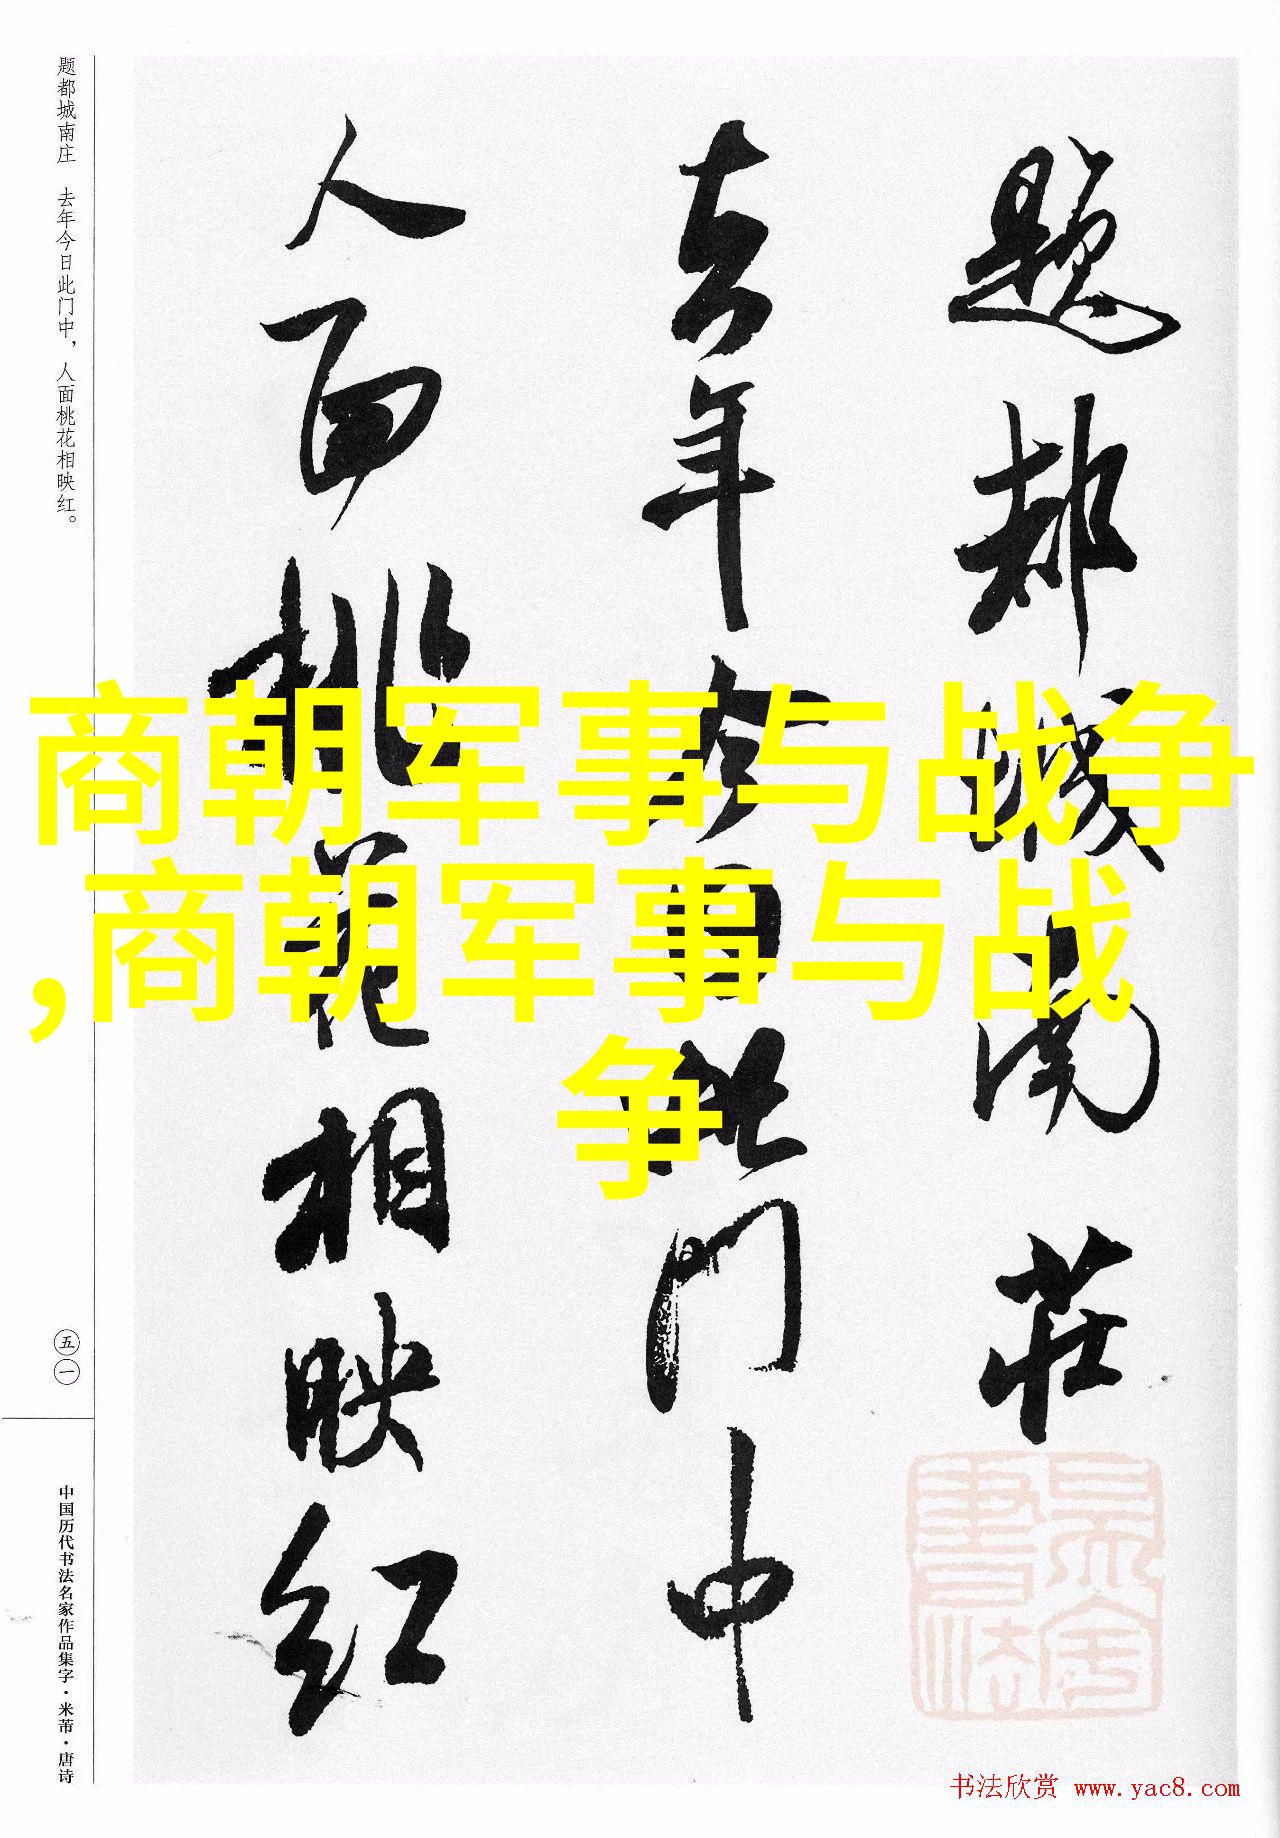 题都城南庄
去年今日此门中
人面桃花相映红
题都城南庄 去年今日此门中，人面桃花相映红。
五一
中国历代书法名家作品集字·米芾·唐诗
商朝军事与战争
,商朝军事与战
争
书法欣赏 www.yac8.com